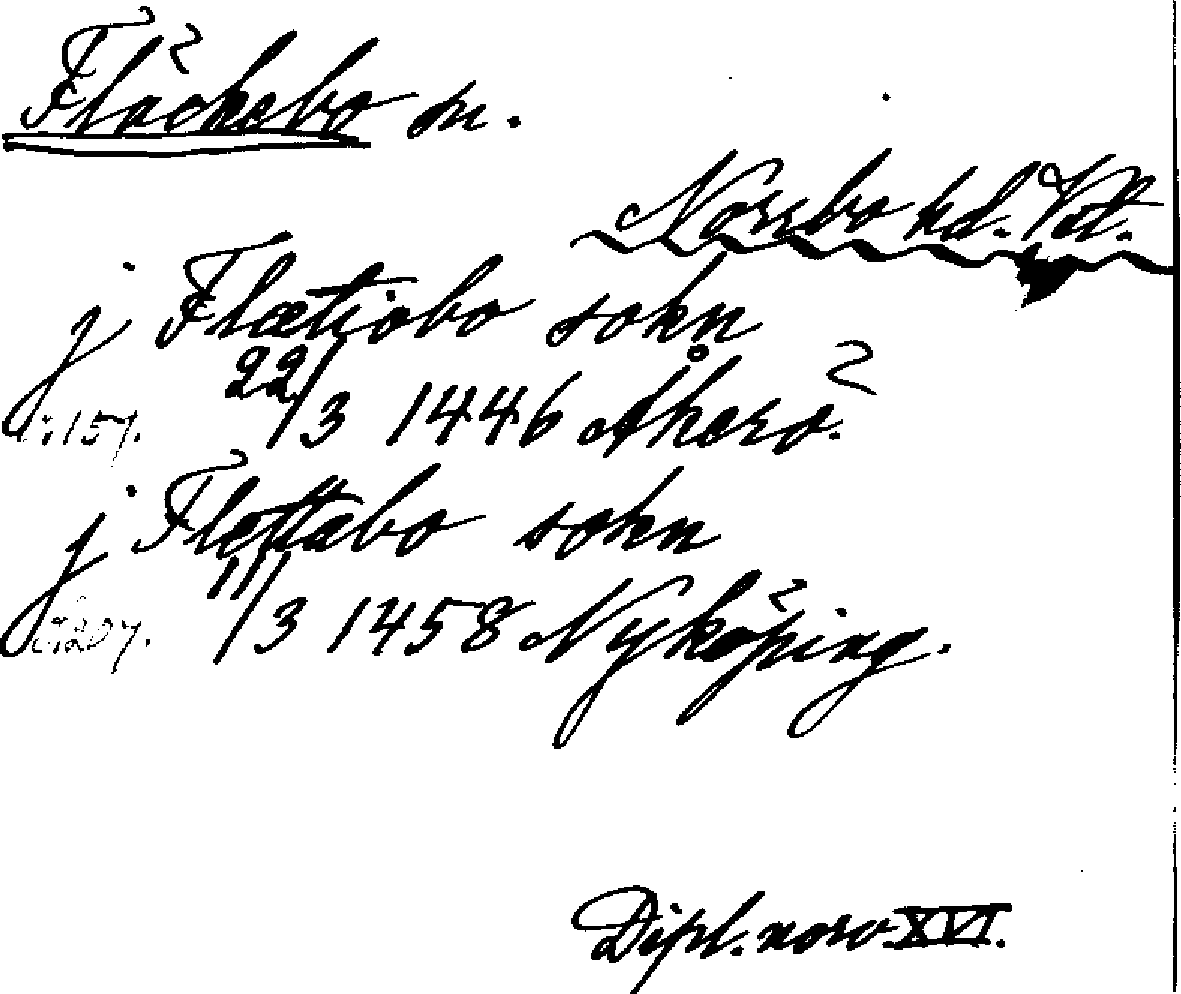 Fläckebo sn.
Norrbo hd. Vstm.
j Flætiobo sokn
s. 157. 22/3 1446 Åkerö.
j Flættabo sokn
s. 207. 11/3 1458 Nyköping.
Dipl. norv. XVI.